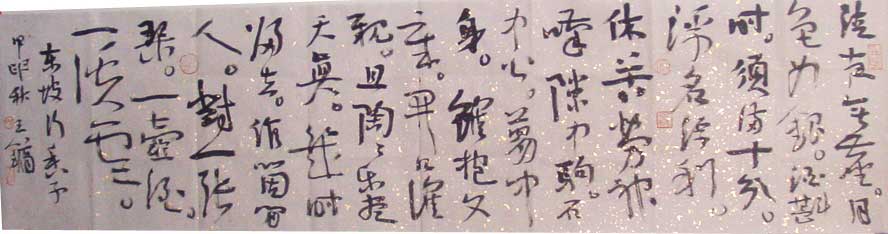 清夜無塵。月
色如銀。酒斟
時。須滿十分。
浮名浮利。
休苦勞神
嘆隙中駒。石
中火。夢中
身。雖抱文
章。開口誰
親。且陶々樂盡
天真。幾時
歸去。作箇閒
人。對一張
琴。一壺酒。
一溪雲。
東坡行香子
甲申秋王鏞